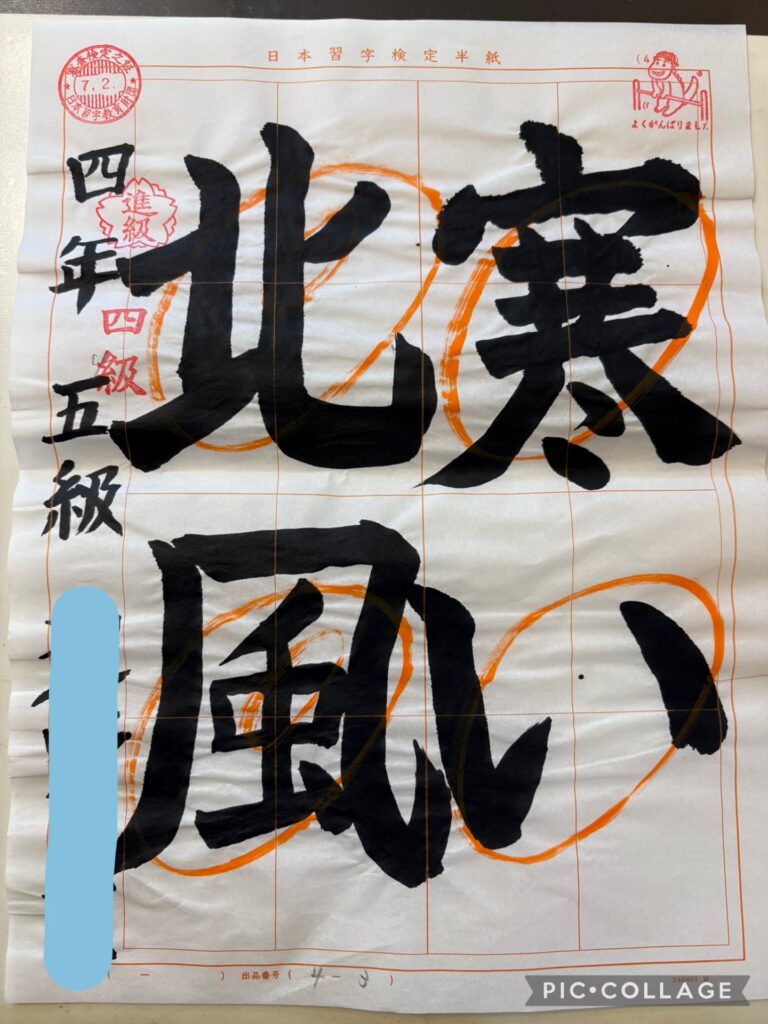 日本習字検定半紙
よくがんばりました
7.2.
日本習字教育財団
寒い
北風
四年 五級
進級
四級
出品番号(4-3)
PIC•COLLAGE